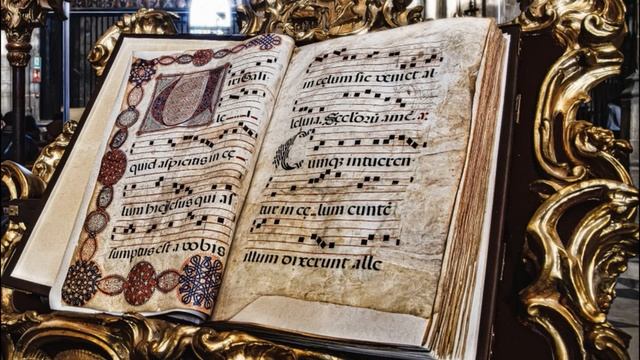 Uiri Gali
le
quid aspiciens in cę
lum hic iesus qui aſ
sumptus est a vobis
in cęlum sic veniet al
leluia. Seclorũ amẽ. a:
Cumqȝ intueren
tur in cę lum euntẽ
illum dixerunt alle